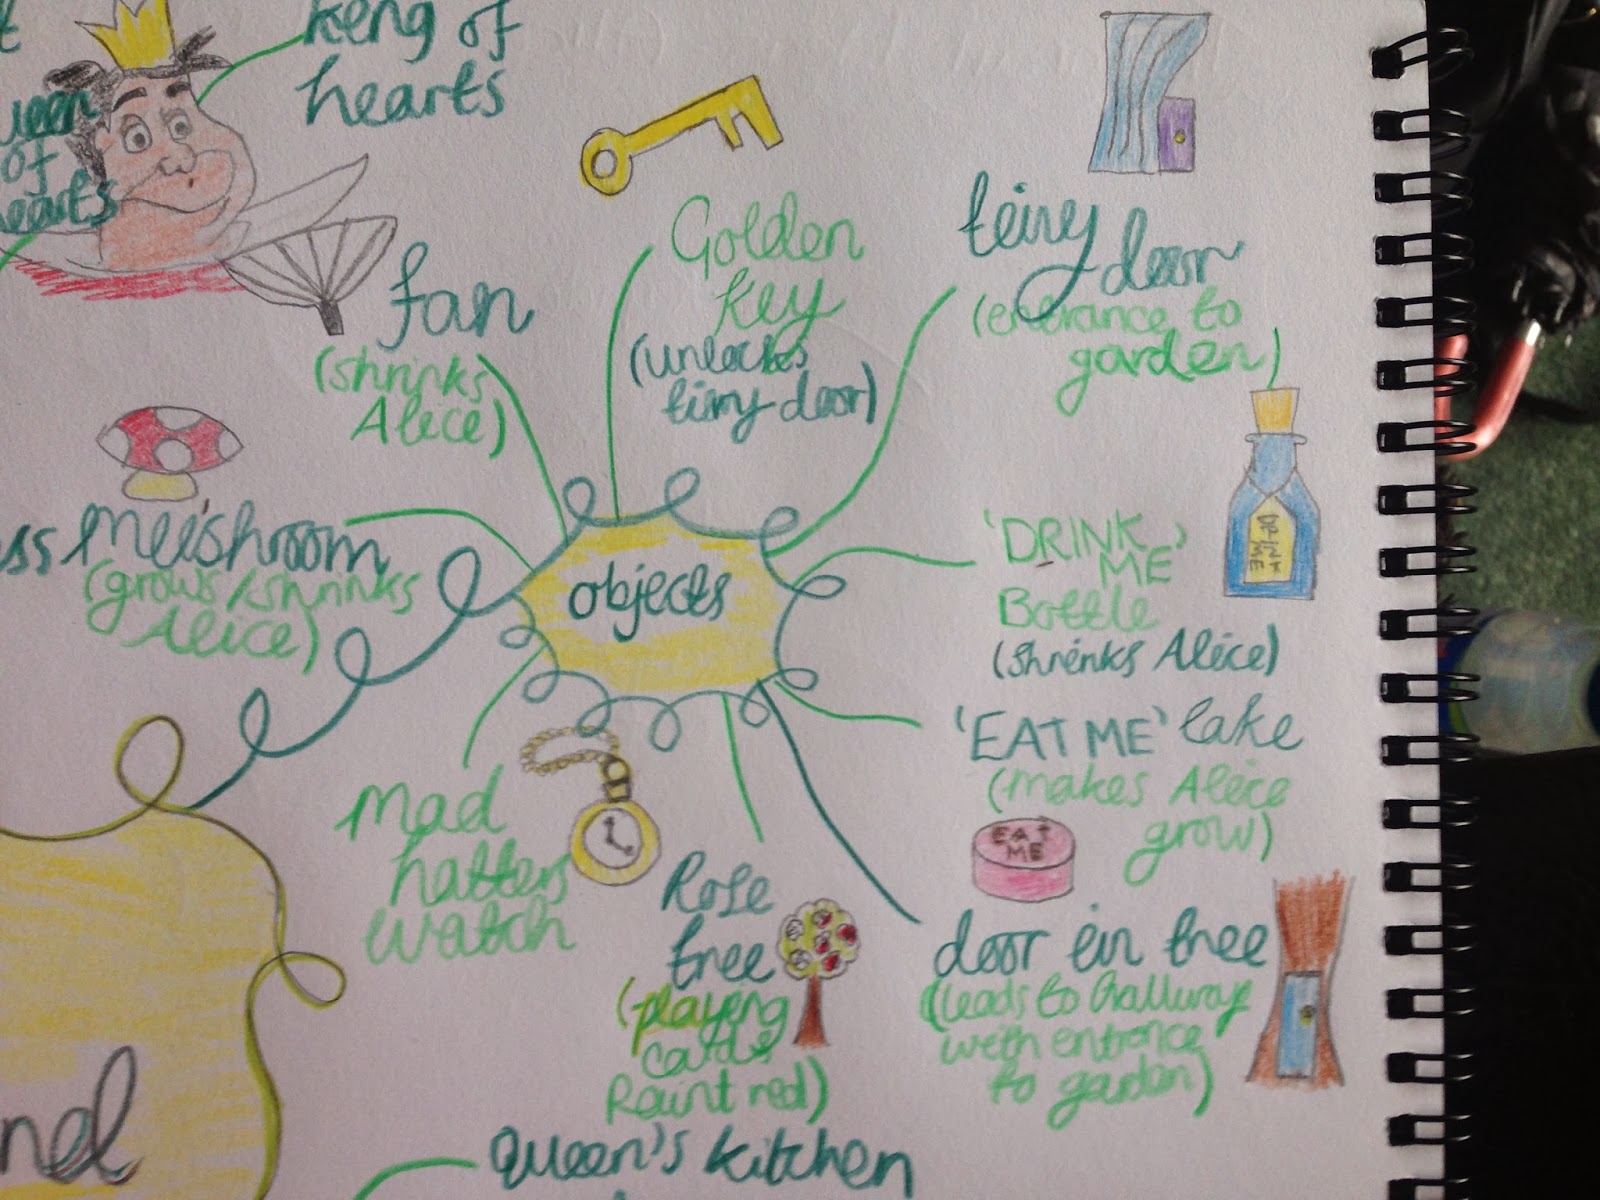 keng of
hearts
ueen
of
hearts
fan
(shrinks
Alice)
Golden
key
(unlocks
tiny door)
teiny
door
(entrance to
garden)
meushroom
(grows/shrinks
Alice)
objects
'DRINK
ME'
Bottle
(Shrenks Alice)
DRINK
ME
'EAT ME' cake
(makes Alice
grow)
EAT
ME
Mad
hatters
watch
Rose
tree
(playeng
cards
Paint red)
door ein tree
(leads to hallway
weth entrance
to garden)
Queen's kitchen
nel